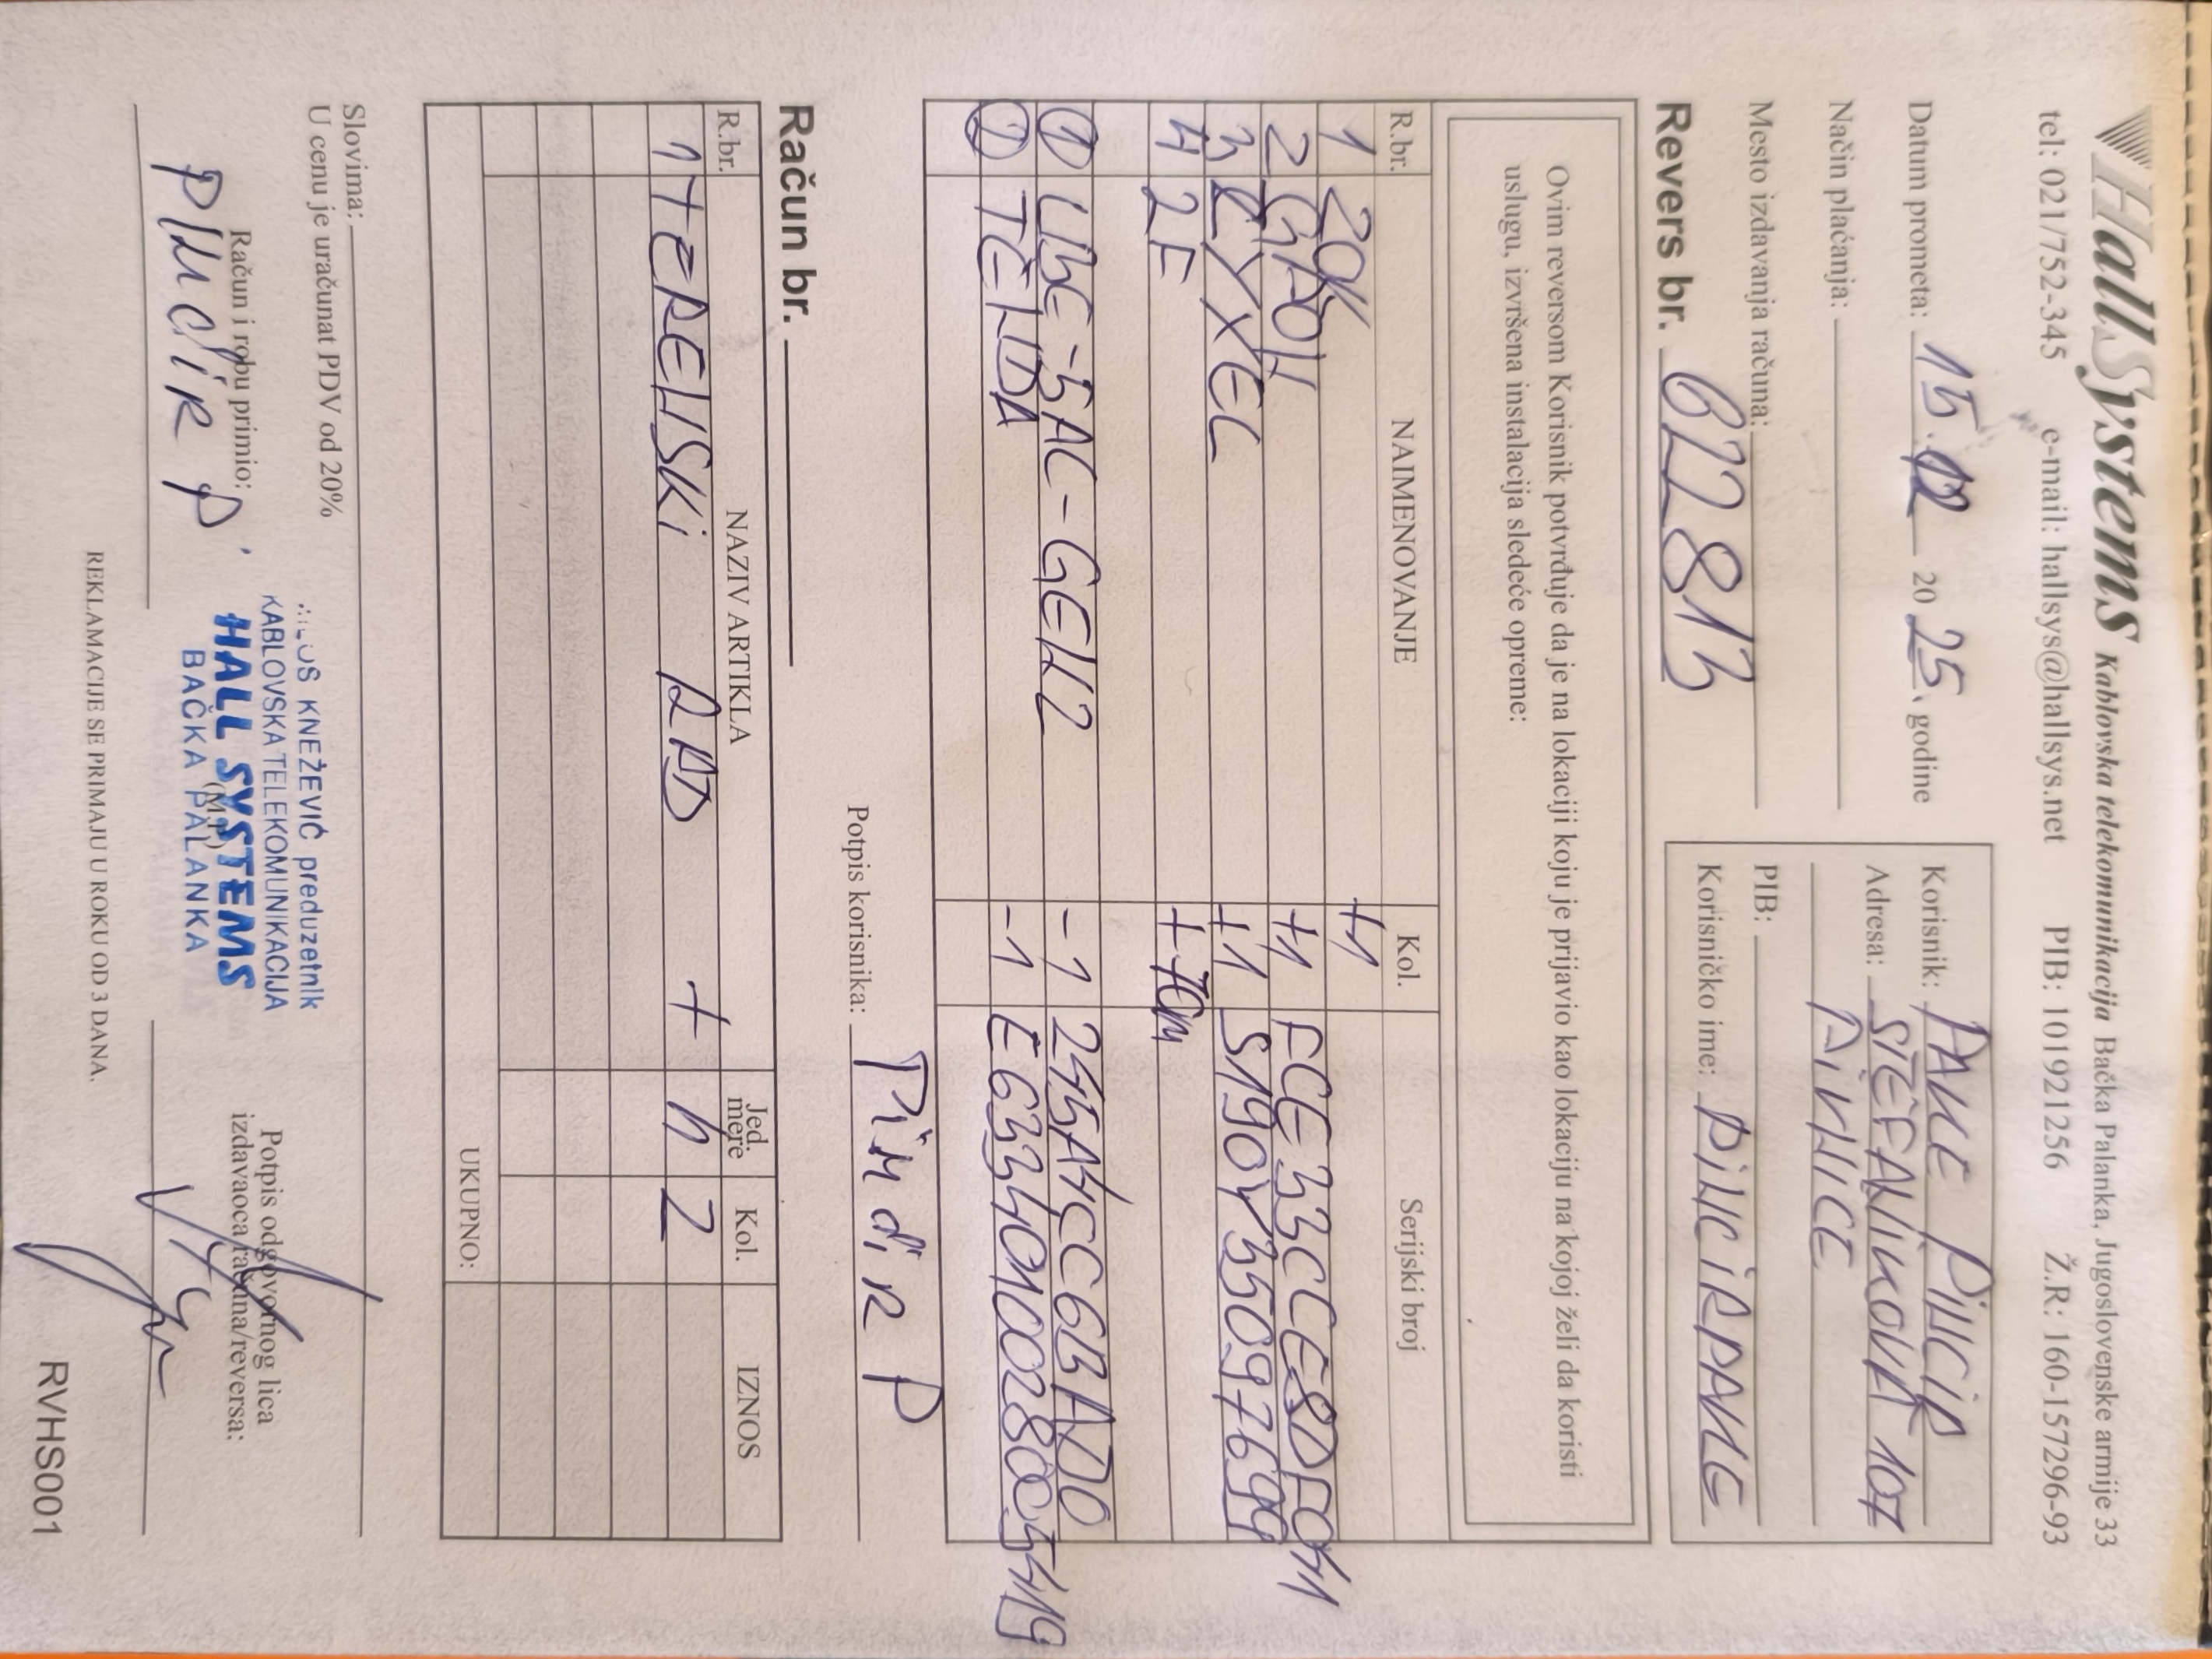 HallSystems Kablovska telekomunikacija Bačka Palanka, Jugoslovenske armije 33
tel: 021/752-345 e-mail: hallsys@hallsys.net PIB: 101921256 Ž.R: 160-157296-93
Datum prometa: 15.12 2025. godine
Način plaćanja:
Mesto izdavanja računa:
Korisnik: PAVLE PILIĆIR
Adresa: STEFANIKOVA 107
PIVNICE
PIB:
Korisničko ime:
Revers br. 622813
Ovim reversom Korisnik potvrđuje da je na lokaciji koju je prijavio kao lokaciju na kojoj želi da koristi
uslugu, izvršena instalacija sledeće opreme:
R.br. NAIMENOVANJE Kol. Serijski broj
1 ZOK +1
2 GPON +1
3 ZYXEL +1 S190Y35097699
4 2F +70m
1 LBE-5AC-GEN2 -1 245A4CC6BAD0
2 TENDA -1
Potpis korisnika:
Račun br.
R.br. NAZIV ARTIKLA Jed. mere Kol. IZNOS
1 TERENSKI RAD + h 2
UKUPNO:
Slovima:
U cenu je uračunat PDV od 20%
Račun i robu primio:
KNEŽEVIĆ preduzetnik
KABLOVSKA TELEKOMUNIKACIJA
HALL SYSTEMS
(M.P.)
BAČKA PALANKA
Potpis odgovornog lica
izdavaoca računa/reversa:
REKLAMACIJE SE PRIMAJU U ROKU OD 3 DANA.
RVHS001